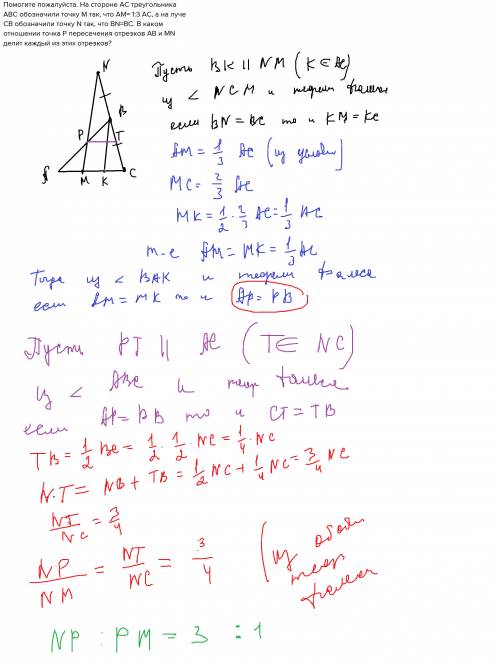 Помогите пожалуйста. На стороне АС треугольника
АВС обозначили точку М так, что АМ= 1:3 АС, а на луче
СВ обозначили точку N так, что BN=BC. В каком
отношении точка Р пересечения отрезков АВ и MN
делит каждый из этих отрезков?
N
B
P T
A M K C
Пусть BK || NM (K ∈ AC)
из ∠ NCM и теореми Фалеса
если BN = BC то и KM = KC
AM = 1/3 AC (из условия)
MC = 2/3 AC
MK = 1/2 · 2/3 AC = 1/3 AC
т-е AM = MK = 1/3 AC
Тогда из ∠ BAK и теореми Фалеса
если AM = MK то и AP = PB
Пусть PT || AC (T ∈ NC)
из ∠ ABC и теор Фалеса
если AP = PB то и CT = TB
TB = 1/2 BC = 1/2 · 1/2 · NC = 1/4 · NC
N·T = NB + TB = 1/2 NC + 1/4 NC = 3/4 NC
NT/NC = 3/4
NP/NM = NT/NC = 3/4 (из обобщ
теор
Фалеса
NP : PM = 3 : 1